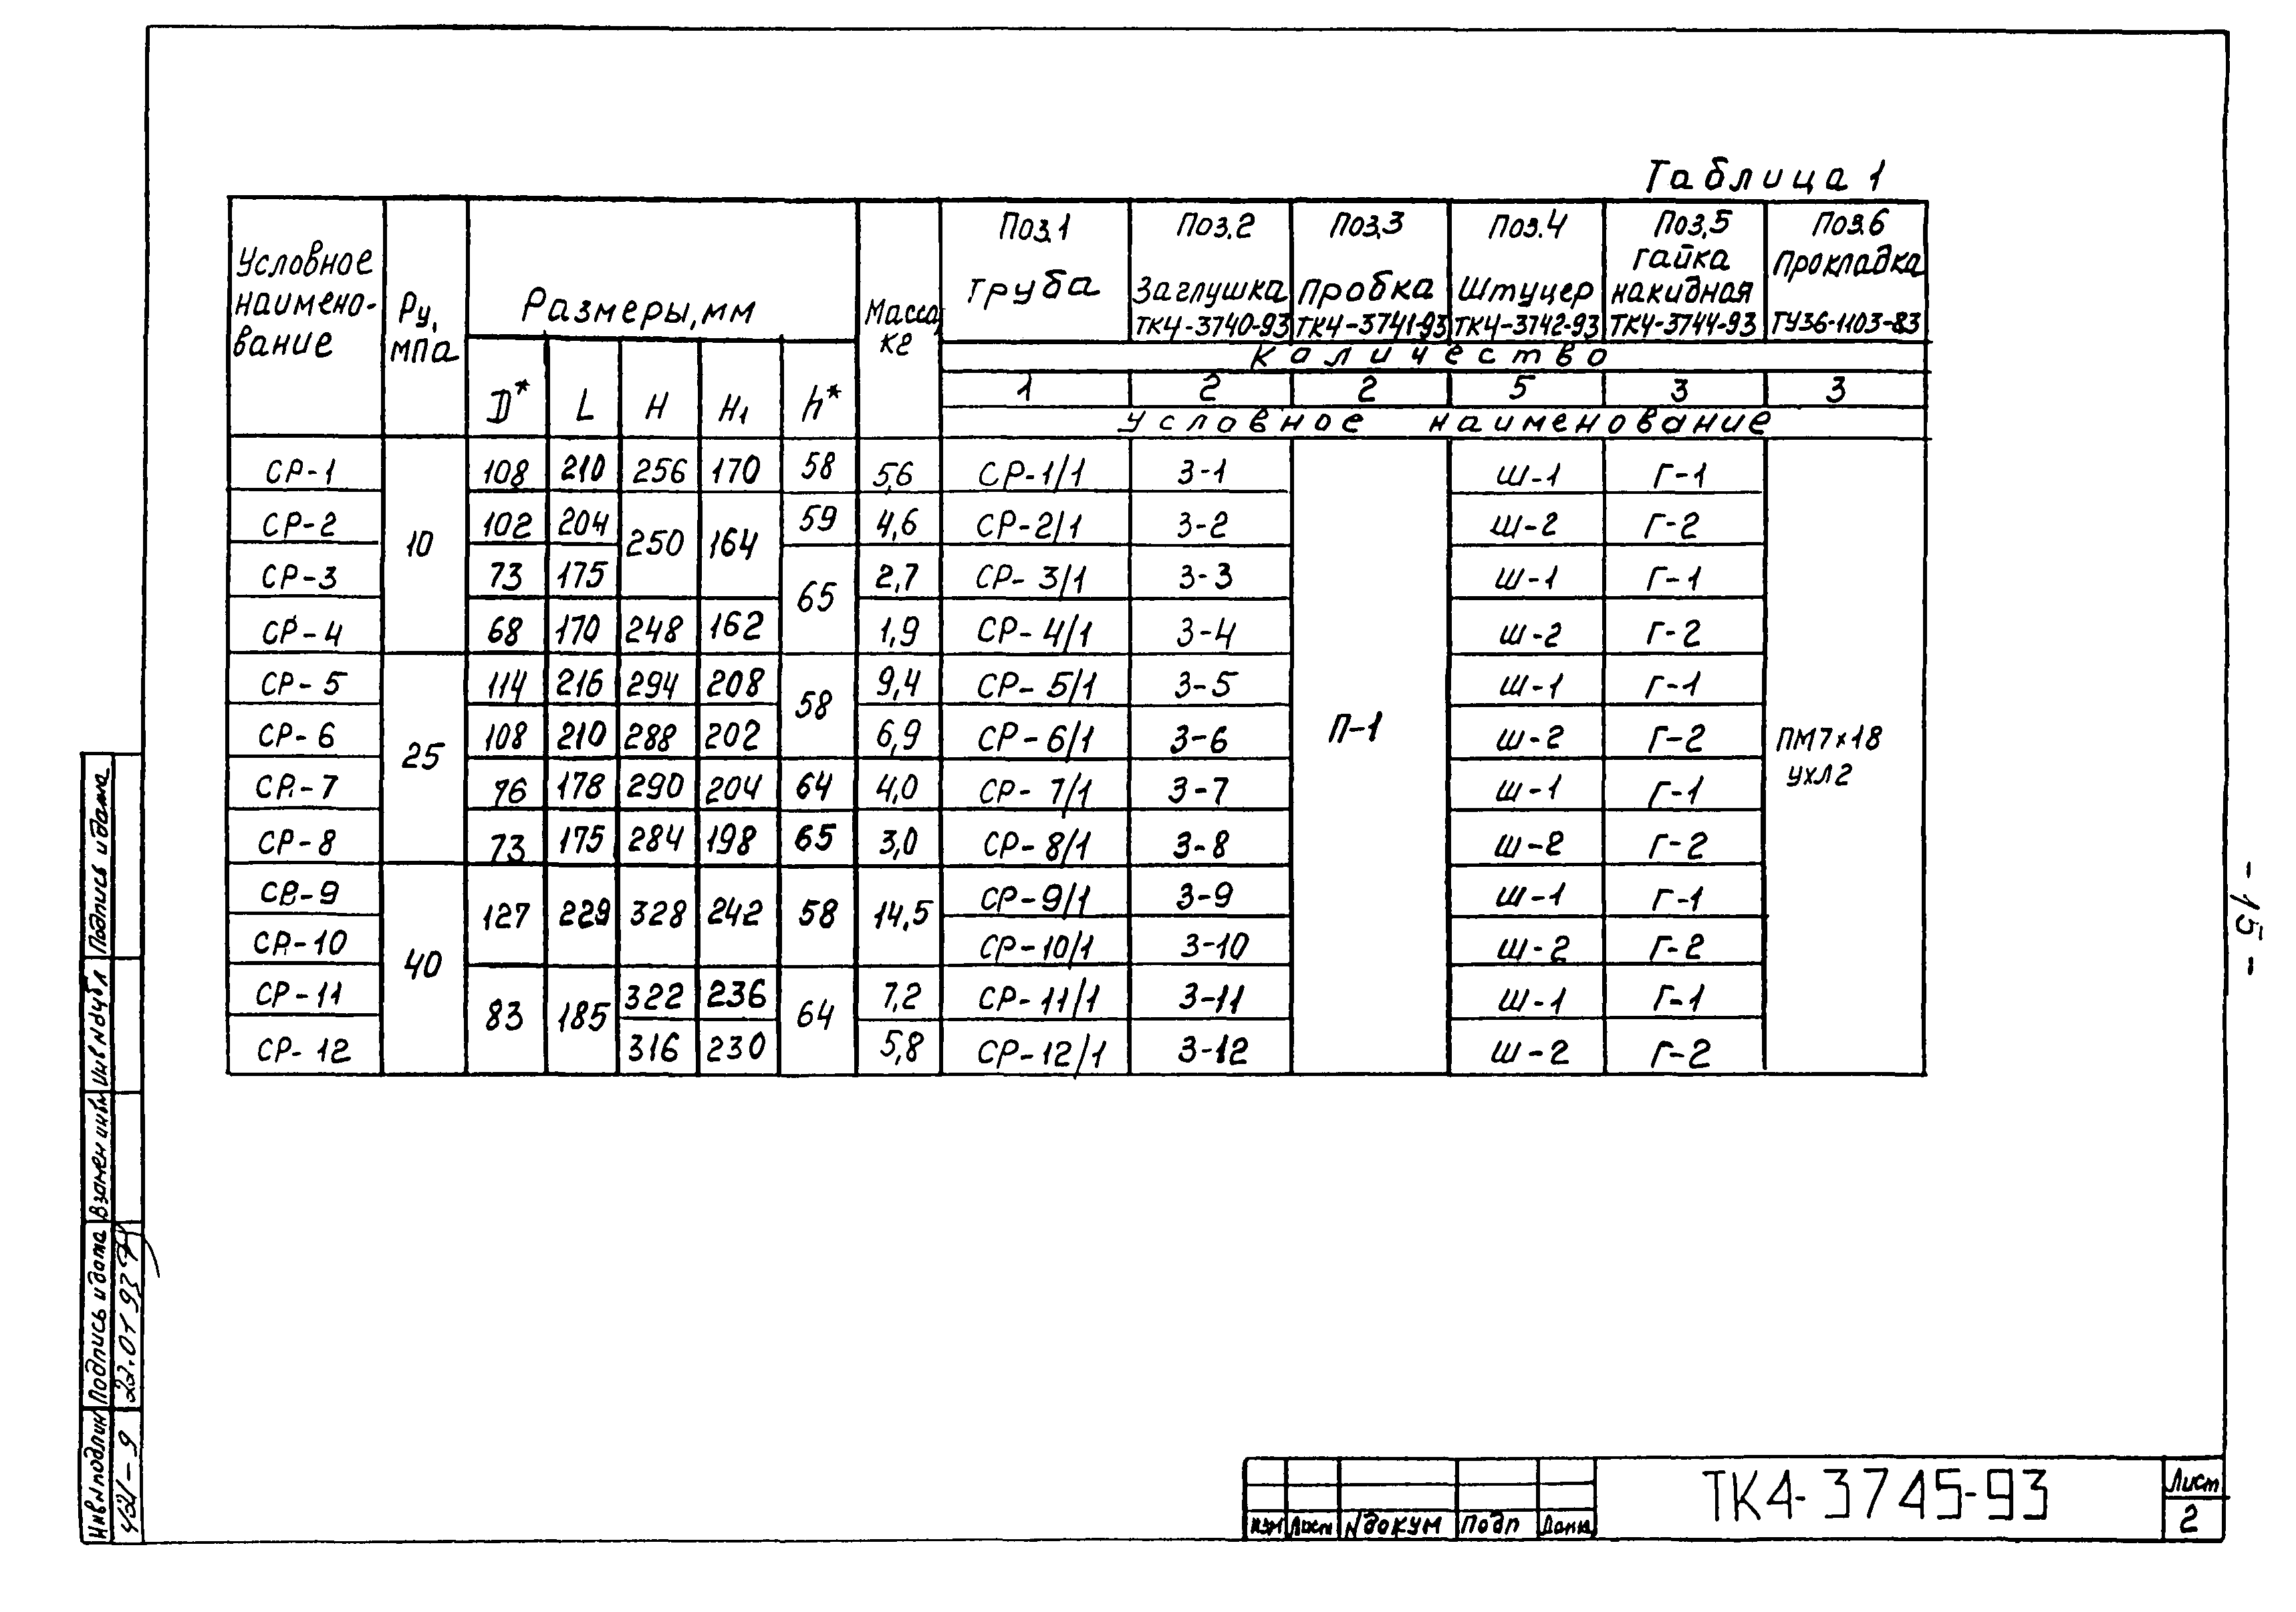 Таблица 1
Условное наимено-вание | Ру, мпа | Размеры, мм | Масса кг | Поз.1 труба | Поз.2 Заглушка ТК4-3740-93 | Поз.3 Пробка ТК4-3741-93 | Поз.4 Штуцер ТК4-3742-93 | Поз.5 гайка накидная ТК4-3744-93 | Поз.6 Прокладка ТУ36-1103-83
Каличество
D* | L | H | H1 | h* | 1 | 2 | 2 | 5 | 3 | 3
Условное наименование
СР-1 | 10 | 108 | 210 | 256 | 170 | 58 | 5,6 | СР-1/1 | З-1 | П-1 | Ш-1 | Г-1 | ПМ7×18 УХЛ2
СР-2 | 102 | 204 | 250 | 164 | 59 | 4,6 | СР-2/1 | З-2 | Ш-2 | Г-2
СР-3 | 73 | 175 | 65 | 2,7 | СР-3/1 | З-3 | Ш-1 | Г-1
СР-4 | 68 | 170 | 248 | 162 | 1,9 | СР-4/1 | З-4 | Ш-2 | Г-2
СР-5 | 25 | 114 | 216 | 294 | 208 | 58 | 9,4 | СР-5/1 | З-5 | Ш-1 | Г-1
СР-6 | 108 | 210 | 288 | 202 | 6,9 | СР-6/1 | З-6 | Ш-2 | Г-2
СР-7 | 76 | 178 | 290 | 204 | 64 | 4,0 | СР-7/1 | З-7 | Ш-1 | Г-1
СР-8 | 73 | 175 | 284 | 198 | 65 | 3,0 | СР-8/1 | З-8 | Ш-2 | Г-2
СР-9 | 40 | 127 | 229 | 328 | 242 | 58 | 14,5 | СР-9/1 | З-9 | Ш-1 | Г-1
СР-10 | СР-10/1 | З-10 | Ш-2 | Г-2
СР-11 | 83 | 185 | 322 | 236 | 64 | 7,2 | СР-11/1 | З-11 | Ш-1 | Г-1
СР-12 | 316 | 230 | 5,8 | СР-12/1 | З-12 | Ш-2 | Г-2
- 15 -
Подпись и дата
Инв N дубл
Взамен инв N
Подпись и дата
22.01 93
Инв N подлин
421-9
Изм Лист N докум Подп Дата
ТК4-3745-93
Лист
2